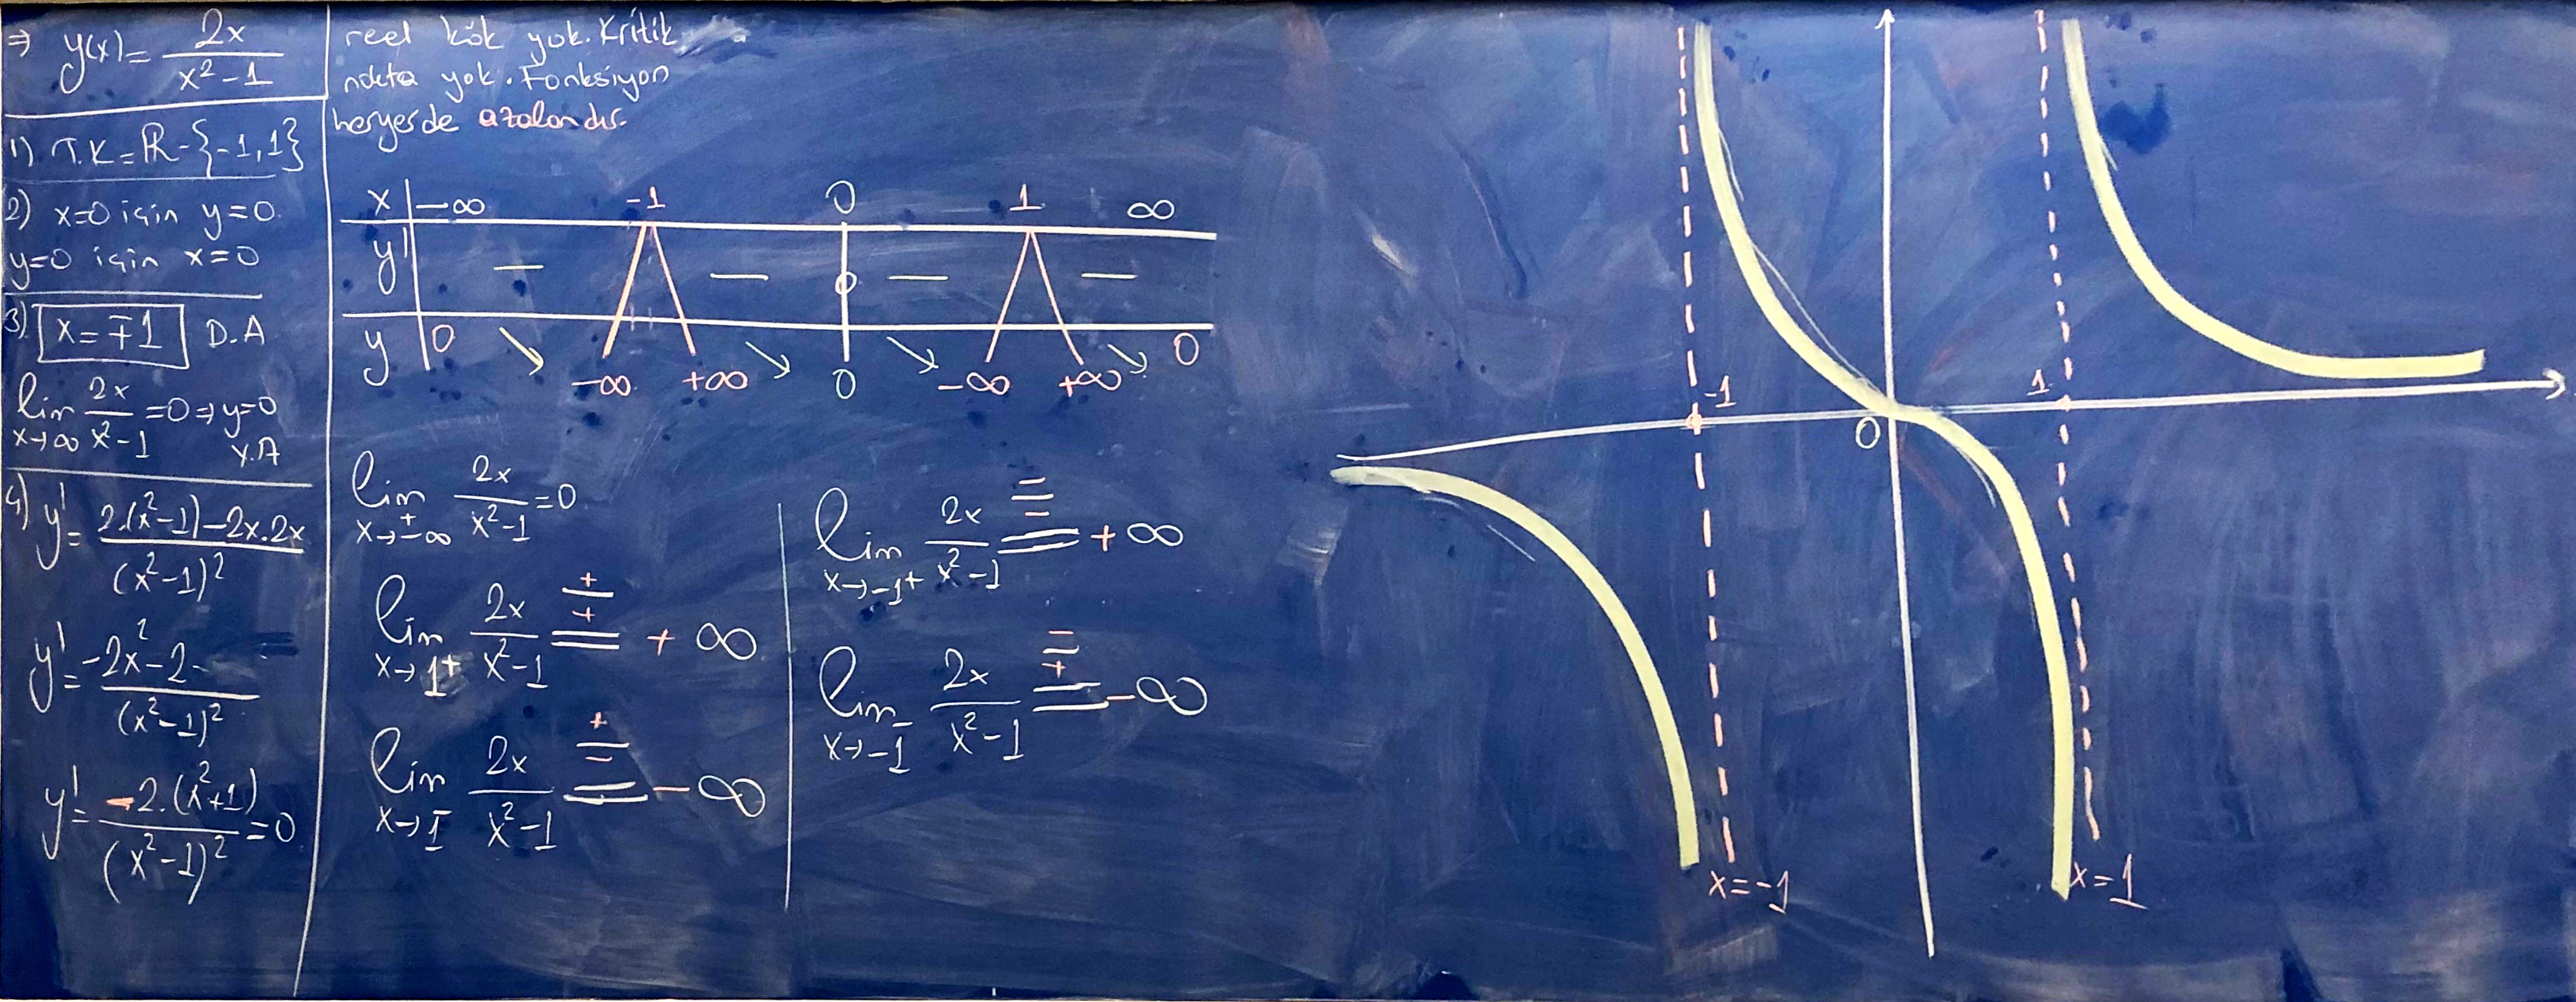 ⇒ y(x) = 2x / x² - 1
1) T.K = ℝ - {-1, 1}
2) x=0 için y=0.
y=0 için x=0
3) x = ∓1 D.A
lim x→∞ 2x / x² - 1 = 0 ⇒ y=0
Y.A
4) y' = 2.(x²-1) - 2x.2x / (x²-1)²
y' = -2x² - 2 / (x²-1)²
y' = -2.(x²+1) / (x²-1)² = 0
reel kök yok. Kritik
nokta yok. Fonksiyon
heryerde azalandır.
x | -∞ -1 0 1 ∞
y' | — — 0 — —
y | 0 ↘ -∞ +∞ ↘ 0 ↘ -∞ +∞ ↘ 0
lim x→±∞ 2x / x²-1 = 0
lim x→1⁺ 2x / x²-1 +/+ = +∞
lim x→1⁻ 2x / x²-1 +/- = -∞
lim x→-1⁺ 2x / x²-1 -/- = +∞
lim x→-1⁻ 2x / x²-1 -/+ = -∞
-1 1
0
x=-1 x=1